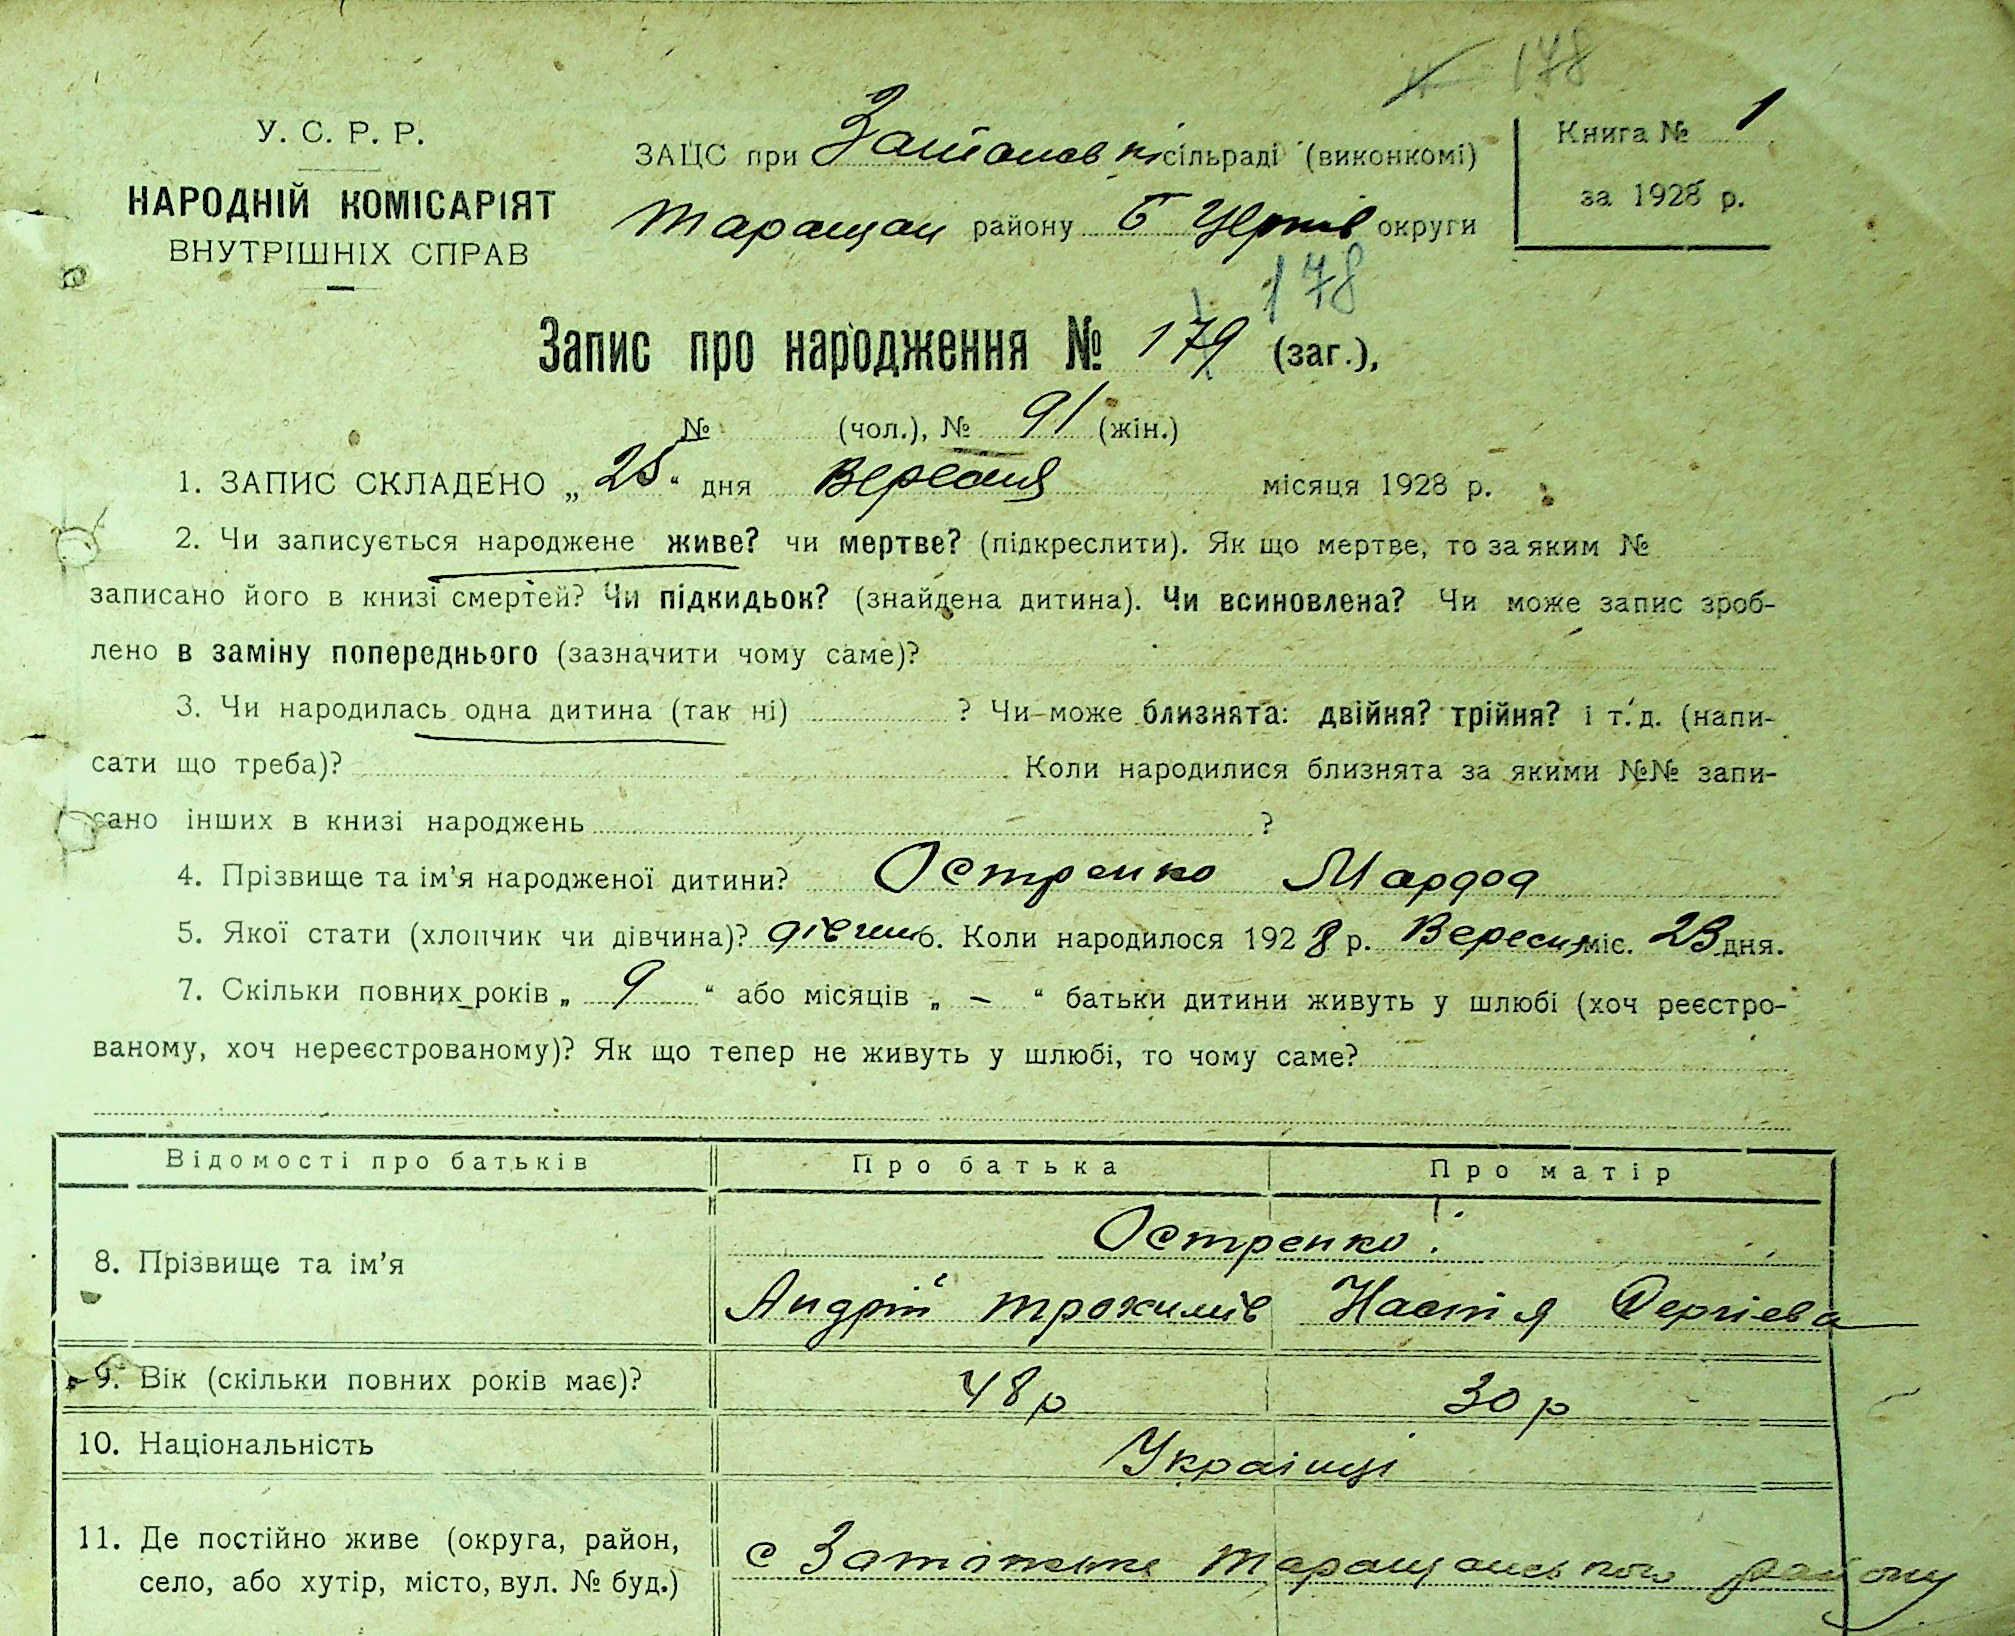 178
У. С. Р. Р.
НАРОДНІЙ КОМІСАРІЯТ
ВНУТРІШНІХ СПРАВ
ЗАЦС при сільраді (виконкомі)
Таращан району Б Церків округи
Книга № 1
за 1928 р.
178
Запис про народження № 179 (заг.),
№ (чол.), № 91 (жін.)
1. ЗАПИС СКЛАДЕНО „ 25 “ дня Вересня місяця 1928 р.
2. Чи записується народжене живе? чи мертве? (підкреслити). Як що мертве, то за яким №
записано його в книзі смертей? Чи підкидьок? (знайдена дитина). Чи всиновлена? Чи може запис зроб-
лено в заміну попереднього (зазначити чому саме)?
3. Чи народилась одна дитина (так ні) ? Чи може близнята: двійня? трійня? і т. д. (напи-
сати що треба)? Коли народилися близнята за якими №№ запи-
сано інших в книзі народжень ?
4. Прізвище та ім’я народженої дитини? Остренко
5. Якої стати (хлопчик чи дівчина)? дівчин 6. Коли народилося 1928 р. Вересня міс. 23 дня.
7. Скільки повних років „ 9 “ або місяців „ – “ батьки дитини живуть у шлюбі (хоч реєстро-
ваному, хоч нереєстрованому)? Як що тепер не живуть у шлюбі, то чому саме?
Відомості про батьків Про батька Про матір
8. Прізвище та ім’я Остренко
Андрій Трохимів Настія Сергієва
9. Вік (скільки повних років має)? 48 р 30 р
10. Національність Українці
11. Де постійно живе (округа, район,
село, або хутір, місто, вул. № буд.) с Таращанського району